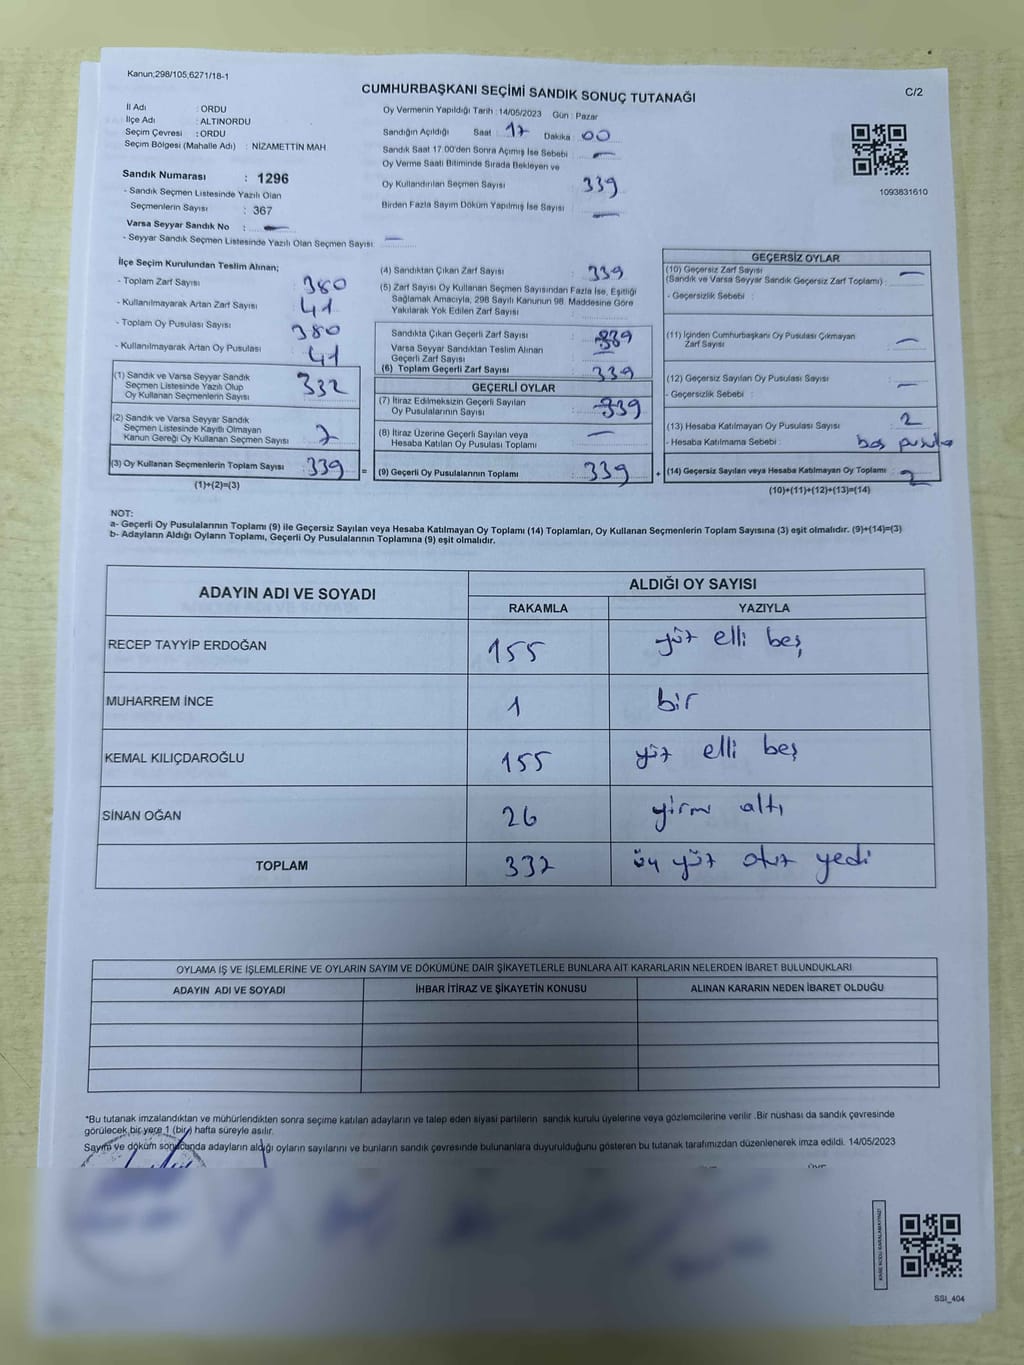 Kanun;298/105;6271/18-1
CUMHURBAŞKANI SEÇİMİ SANDIK SONUÇ TUTANAĞI
C/2
İl Adı : ORDU
İlçe Adı : ALTINORDU
Seçim Çevresi : ORDU
Seçim Bölgesi (Mahalle Adı) : NİZAMETTİN MAH
Sandık Numarası : 1296
- Sandık Seçmen Listesinde Yazılı Olan
Seçmenlerin Sayısı : 367
Varsa Seyyar Sandık No : —
- Seyyar Sandık Seçmen Listesinde Yazılı Olan Seçmen Sayısı: —
Oy Vermenin Yapıldığı Tarih : 14/05/2023 Gün : Pazar
Sandığın Açıldığı Saat 17 Dakika 00
Sandık Saat 17.00'den Sonra Açımış İse Sebebi : —
Oy Verme Saati Bitiminde Sırada Bekleyen ve
Oy Kullandırılan Seçmen Sayısı : 339
Birden Fazla Sayım Döküm Yapılmış İse Sayısı : —
1093831610
İlçe Seçim Kurulundan Teslim Alınan;
- Toplam Zarf Sayısı : 380
- Kullanılmayarak Artan Zarf Sayısı : 41
- Toplam Oy Pusulası Sayısı : 380
- Kullanılmayarak Artan Oy Pusulası : 41
(1) Sandık ve Varsa Seyyar Sandık
Seçmen Listesinde Yazılı Olup
Oy Kullanan Seçmenlerin Sayısı : 332
(2) Sandık ve Varsa Seyyar Sandık
Seçmen Listesinde Kayıtlı Olmayan
Kanun Gereği Oy Kullanan Seçmen Sayısı : 7
(3) Oy Kullanan Seçmenlerin Toplam Sayısı : 339 =
(1)+(2)=(3)
(4) Sandıktan Çıkan Zarf Sayısı : 339
(5) Zarf Sayısı Oy Kullanan Seçmen Sayısından Fazla İse, Eşitliği
Sağlamak Amacıyla, 298 Sayılı Kanunun 98. Maddesine Göre
Yakılarak Yok Edilen Zarf Sayısı :
Sandıkta Çıkan Geçerli Zarf Sayısı : 339
Varsa Seyyar Sandıktan Teslim Alınan
Geçerli Zarf Sayısı : —
(6) Toplam Geçerli Zarf Sayısı : 339
GEÇERLİ OYLAR
(7) İtiraz Edilmeksizin Geçerli Sayılan
Oy Pusulalarının Sayısı : 339
(8) İtiraz Üzerine Geçerli Sayılan veya
Hesaba Katılan Oy Pusulası Toplamı : —
(9) Geçerli Oy Pusulalarının Toplamı : 339 +
GEÇERSİZ OYLAR
(10) Geçersiz Zarf Sayısı
(Sandık ve Varsa Seyyar Sandık Geçersiz Zarf Toplamı) : —
- Geçersizlik Sebebi :
(11) İçinden Cumhurbaşkanı Oy Pusulası Çıkmayan
Zarf Sayısı : —
(12) Geçersiz Sayılan Oy Pusulası Sayısı : —
- Geçersizlik Sebebi :
(13) Hesaba Katılmayan Oy Pusulası Sayısı : 2
- Hesaba Katılmama Sebebi : boş pusula
(14) Geçersiz Sayılan veya Hesaba Katılmayan Oy Toplamı : 2
(10)+(11)+(12)+(13)=(14)
NOT:
a- Geçerli Oy Pusulalarının Toplamı (9) ile Geçersiz Sayılan veya Hesaba Katılmayan Oy Toplamı (14) Toplamları, Oy Kullanan Seçmenlerin Toplam Sayısına (3) eşit olmalıdır. (9)+(14)=(3)
b- Adayların Aldığı Oyların Toplamı, Geçerli Oy Pusulalarının Toplamına (9) eşit olmalıdır.
ADAYIN ADI VE SOYADI ALDIĞI OY SAYISI
RAKAMLA YAZIYLA
RECEP TAYYİP ERDOĞAN 155 yüz elli beş
MUHARREM İNCE 1 bir
KEMAL KILIÇDAROĞLU 155 yüz elli beş
SİNAN OĞAN 26 yirmi altı
TOPLAM 337 üç yüz otuz yedi
OYLAMA İŞ VE İŞLEMLERİNE VE OYLARIN SAYIM VE DÖKÜMÜNE DAİR ŞİKAYETLERLE BUNLARA AİT KARARLARIN NELERDEN İBARET BULUNDUKLARI
ADAYIN ADI VE SOYADI İHBAR İTİRAZ VE ŞİKAYETİN KONUSU ALINAN KARARIN NEDEN İBARET OLDUĞU
*Bu tutanak imzalandıktan ve mühürlendikten sonra seçime katılan adayların ve talep eden siyasi partilerin sandık kurulu üyelerine veya gözlemcilerine verilir .Bir nüshası da sandık çevresinde
görülecek bir yere 1 (bir) hafta süreyle asılır.
Sayım ve döküm sonucunda adayların aldığı oyların sayılarını ve bunların sandık çevresinde bulunanlara duyurulduğunu gösteren bu tutanak tarafımızdan düzenlenerek imza edildi. 14/05/2023
KARE KODU KARALAMAYINIZ!
SSI_404